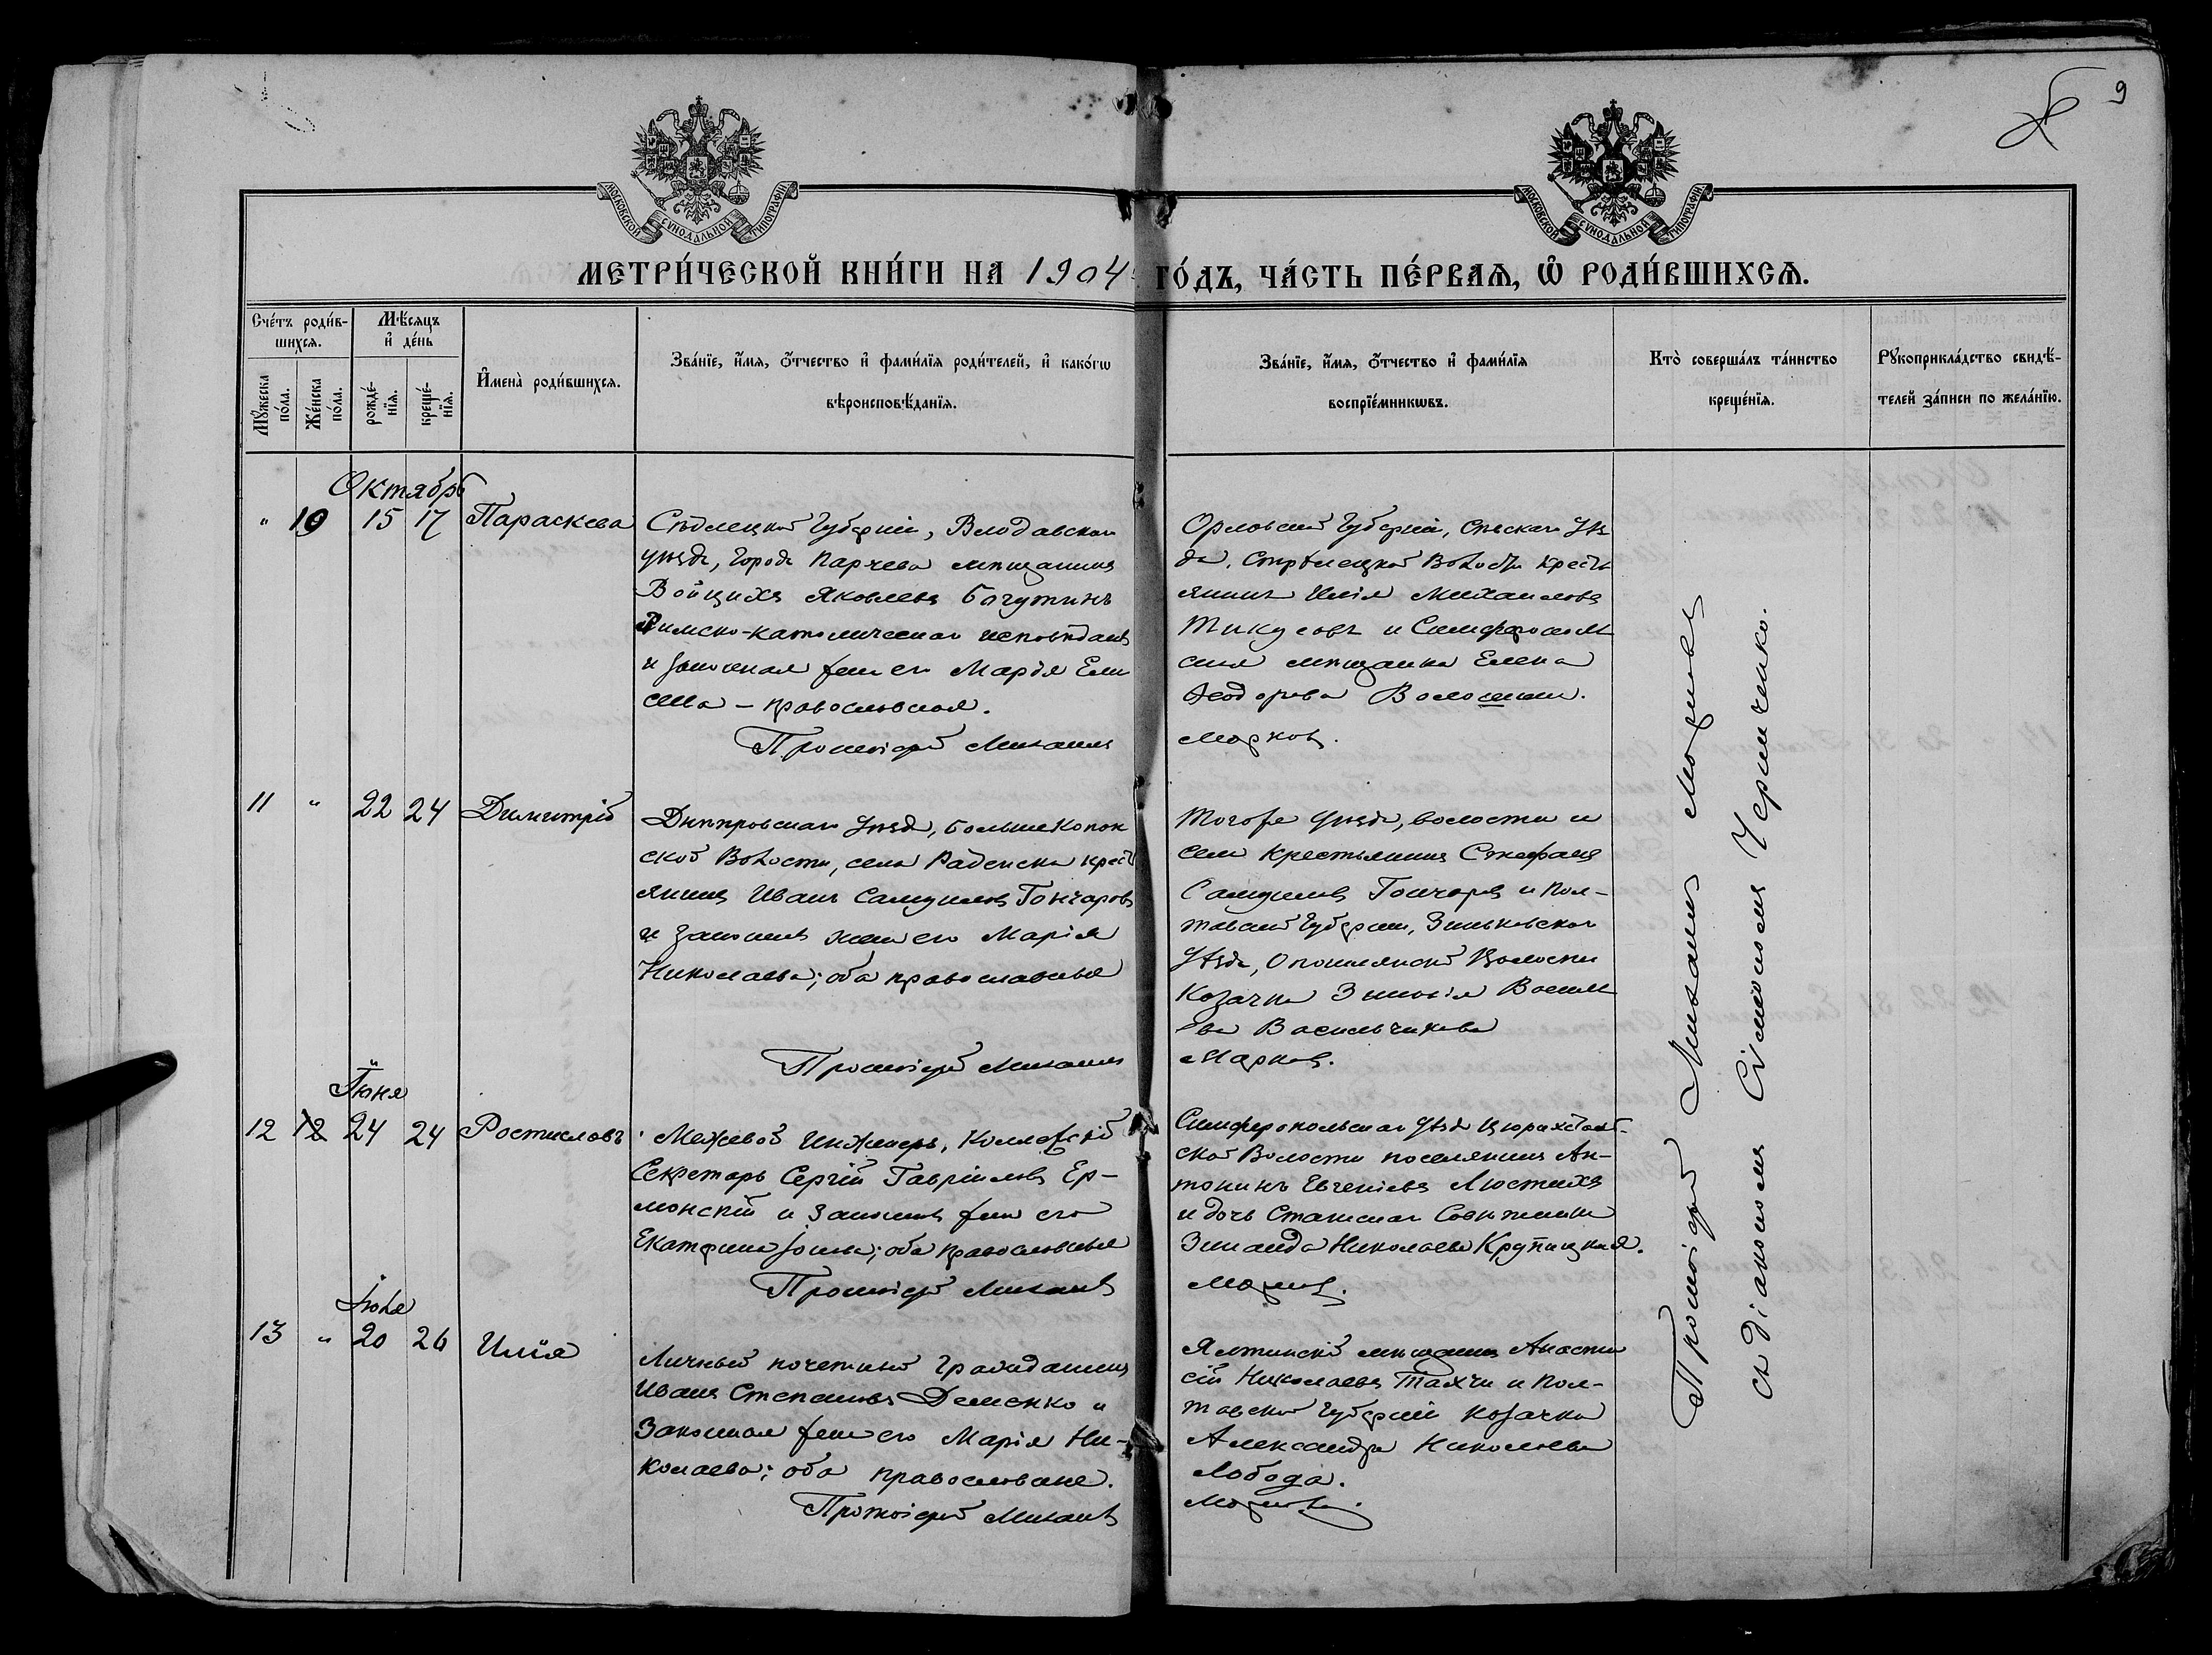 9
МОСКОВСКОЙ СѴНОДАЛЬНОЙ ТИПОГРАФІИ
МОСКОВСКОЙ СѴНОДАЛЬНОЙ ТИПОГРАФІИ
МЕТРИ́ЧЕСКОЙ КНИ́ГИ НА 1904 ГО́ДЪ, ЧА́СТЬ ПЕ́РВАѦ, Ѽ РОДИ́ВШИХСѦ.
Сче́тъ роди́в-
шихсѧ.
Мѣ́сѧцъ
и҆ де́нь
Мꙋ́жеска
по́ла.
Же́нска
по́ла.
рожде́-
нїѧ.
креще́-
нїѧ.
И҆мена̀ роди́вшихсѧ.
Зва́нїе, и҆́мѧ, ѻ҆́тчество и҆ фами́лїѧ роди́телей, и҆ како́гѡ
вѣроисповѣ́данїѧ.
Зва́нїе, и҆́мѧ, ѻ҆́тчество и҆ фами́лїѧ
воспрїе́мникѡвъ.
Кто̀ соверша́лъ та́инство
креще́нїѧ.
Рꙋкоприкла́дство свидѣ́-
телей за́писи по жела́нїю.
Октябрь
" 10 15 17 Параскева
Сѣдлецкой Губерніи, Влодавскаго
уѣзда, города Парчева мѣщанинъ
Войцихъ Яковлевъ
Римско-католическаго исповѣданія
и законная жена его Марія Ели
сеева - православная.
Протоіерей Михаилъ
Орловской Губерніи, Уѣз
да, Стрѣлецкой Волости крестья
янинъ Илія Михайловъ
и Симферополь
ская мѣщанка Елена
Ѳеодорова
Марковъ.
11 " 22 24 Димитрій
Днѣпровскаго Уѣзда, Больше Копан
ской Волости, села Раденска крестья
янинъ Иванъ Самуиловъ Гончаровъ
и законная жена его Марія
Николаева; оба православные
Протоіерей Михаилъ
Того же Уѣзда, волости и
села крестьянинъ Стефанъ
Самуиловъ Гончаровъ и Пол-
тавской Губерніи, Зиньковскаго
Уѣзда, Опошнянской Волости
Козачка Зиновія Василь
ева Васильчикова
Марковъ.
Іюня
12 12 24 24 Ростиславъ
Межевой Инженеръ, Коллежскій
Секретарь Сергій Гавріиловъ Ер-
монскій и законная жена его
Екатерина ; оба православные
Протоіерей Михаилъ
Симферопольскаго Уѣзда Цюрихталь-
ской Волости поселянинъ Ан-
тонинъ Евгеніевъ Люстихъ
и дочь Статскаго Совѣтника
Зинаида Николаева Крупицкая.
Марковъ.
Іюля
13 " 20 26 Илія
Личный почетный гражданинъ
Иванъ Степановъ Деменко и
Законная жена его Марія Ни-
колаева; оба православные.
Протоіерей Михаилъ
Ялтинскій мѣщанинъ Анаста
сій Николаевъ Тахчи и Пол-
тавской Губерніи козачка
Александра Николаева
Лобода.
Марковъ.
Протоіерей Михаилъ Марковъ
съ діакономъ Симеономъ Черниченко.